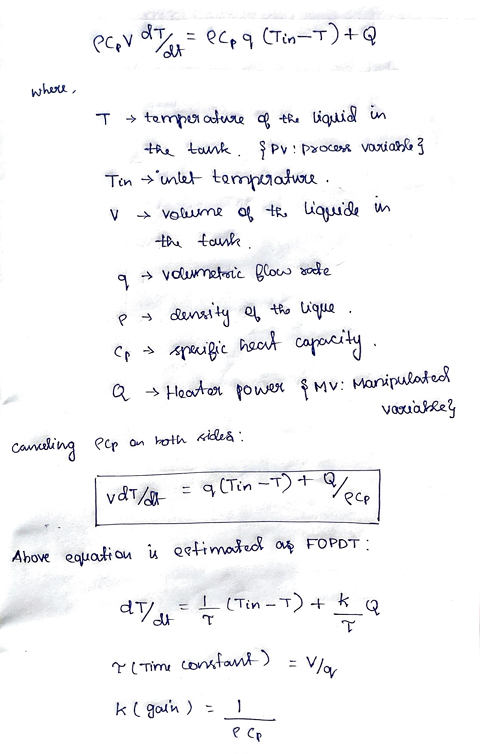 ρCpV dT/dt = ρCp q (Tin-T) + Q
where,
T → temperature of the liquid in
the tank. {PV: process variable}
Tin → inlet temperature.
V → volume of the liquide in
the tank.
q → volumetric flow rate
ρ → density of the lique.
Cp → specific heat capacity.
Q → Heater power {MV: Manipulated
variable}
canceling ρCp on both sides:
V dT/dt = q (Tin-T) + Q/ρCp
Above equation is estimated as FOPDT:
dT/dt = 1/τ (Tin-T) + k/τ Q
τ (Time constant) = V/q
k (gain) = 1/ρCp